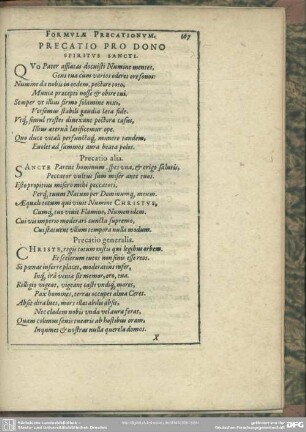 FORMULÆ PRECATIONUM. 167
PRECATIO PRO DONO
SPIRITVS SANCTI.
QVo Pater afflatas docuisti Numine mentes,
Gens tua cum varios ederet ore sonos:
Numine da nobis in eodem, pectore toto,
Munia præcepti nosse &amp; obire tui.
Semper ut illius firmo solamine nixi,
Versemus stabili gaudia læta fide.
Vtq̃, simul tristes dimoueant pectora casus,
Illius æterna lætificemur ope.
Quo duce vitali perfunctaq̃, munere tandem,
Euolet ad summos aura beata polos.
Precatio alia.
SANCTE Pater hominum, spes una, &amp; origo salutis,
Peccator vultus sum miser ante tuos.
Esto propitius misero mihi peccatori,
Perq̃, tuum Natum per Dominumq̃, meum.
Æqualis tecum qui vivit Numine CHRISTVS,
Cumq̃, tuo vivit Flamine, Numen idem.
Cuius in imperio moderari cuncta supremo,
Cui statuent ullum tempora nulla modum.
Precatio generalis.
CHRISTE, regis tacitu mentes qui legibus orbem,
Et scelerum tutos non sinis esse reos.
Si ponas inferre places, moderatius infer,
Inq̃, ira venia sis memor, oro, tua.
Relligio vigeat, vigeant casti vndiq̃, mores,
Pax homines, terras occupet alma Ceres.
Absit dira lues, mors illætabilis absit,
Net cladem nobis vnda vel aura ferat,
Quam colimus senis curaris ab hostibus oram,
Inquinet &amp; nostras nulla querela domos.
X